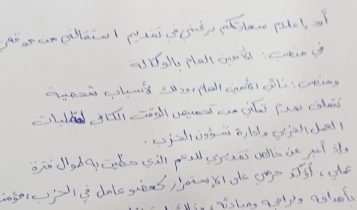 أود إعلام سعادتكم برغبتي في تقديم استقالتي من موقعي
في منصب: الأمين العام بالوكالة
ومنصب: نائب الأمين العام، وذلك لأسباب شخصية
تتعلق بعدم تمكني من تخصيص الوقت الكافي لمتطلبات
العمل الحزبي وإدارة شؤون الحزب.
وإذ أعبر عن خالص تقديري للدعم الذي حظيت به طوال فترة
عملي، أؤكد حرصي على الاستمرار كعضو عامل في الحزب، مؤمنة
بأهدافه وبرامجه ومبادئه،